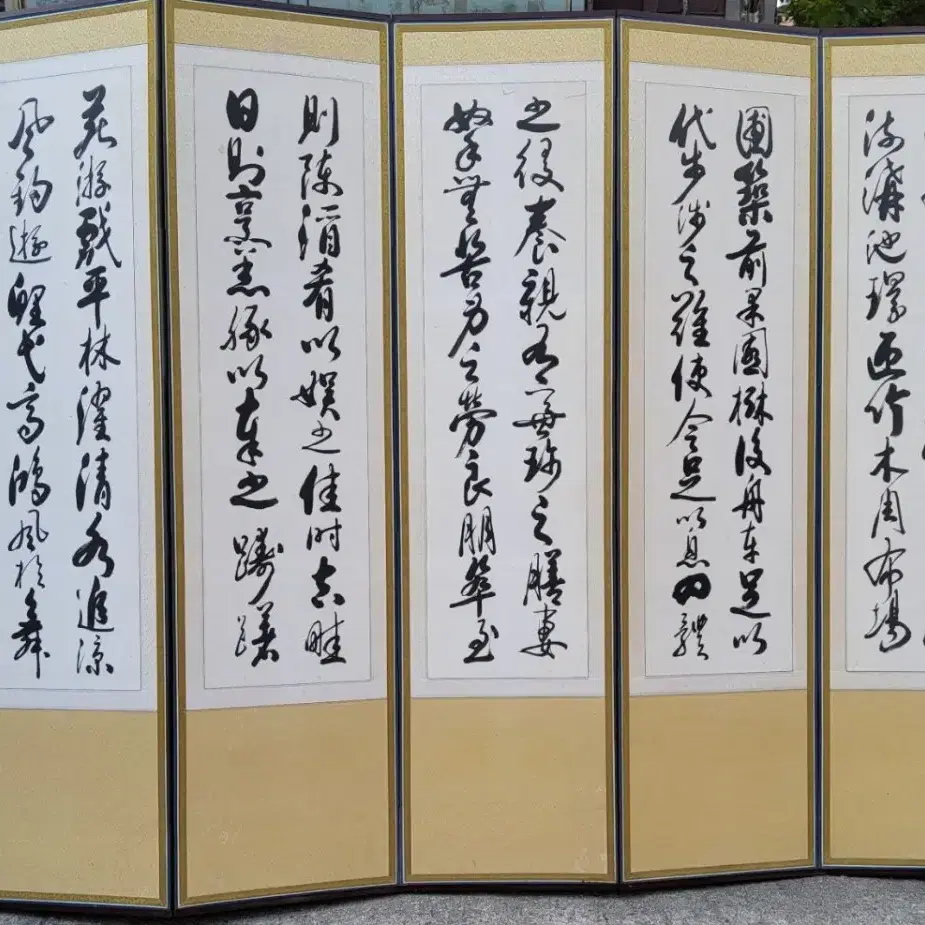 流溝池環匝竹木周布場
圃築前果園樹後舟車足以
代步涉之難使令足以息四體
之役養親有兼珍之膳妻
孥無苦身之勞良朋萃至
則陳酒肴以娛之佳時吉畦
日則烹羔豚以奉之躊躇
苑游戲平林濯清水追涼
風釣遊鯉弋高鴻風於舞